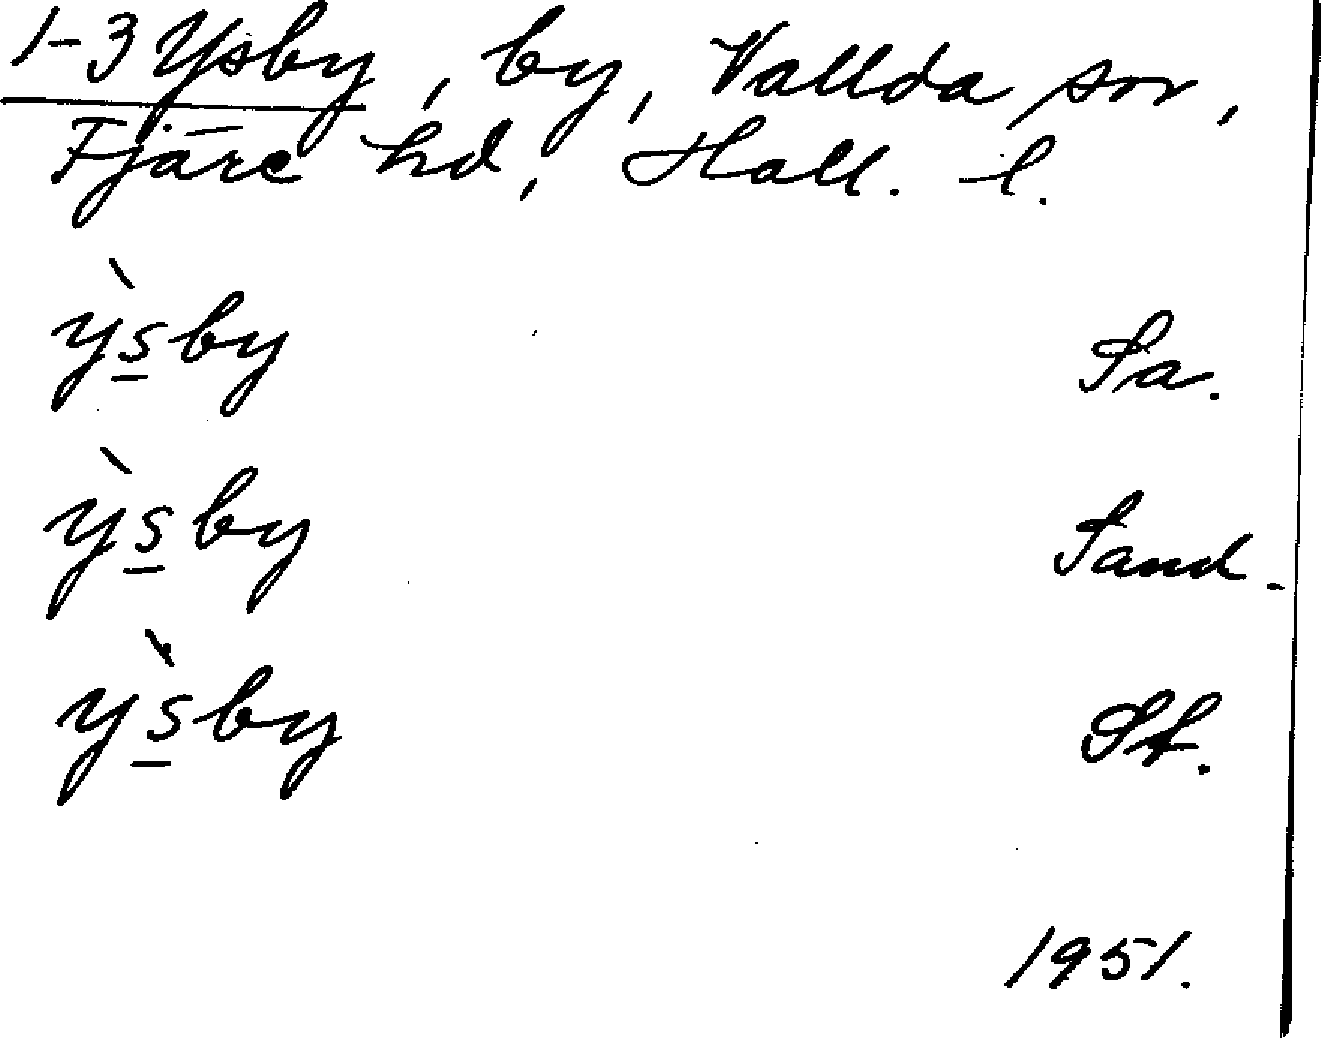 1-3 Ysby, by, Vallda sn,
Fjäre hd, Hall. l.
ỳsby Sa.
ỳsby Sand.
ỳsby St.
1951.